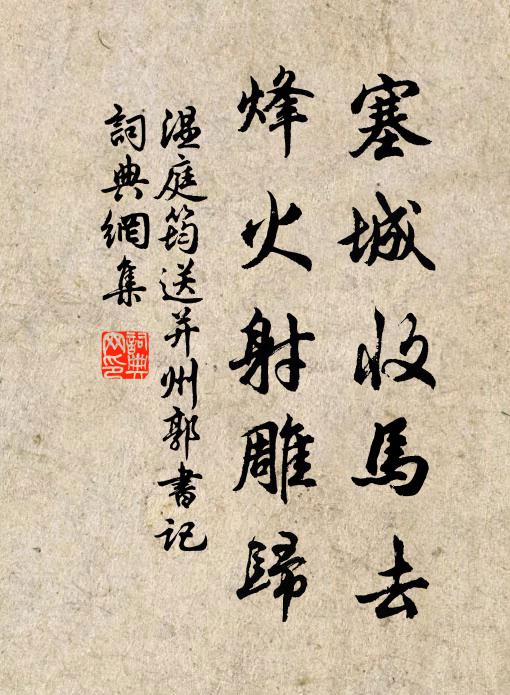 塞城收馬去
烽火射雕歸
温庭筠送并州郭書記
詞典網集
詞典网印